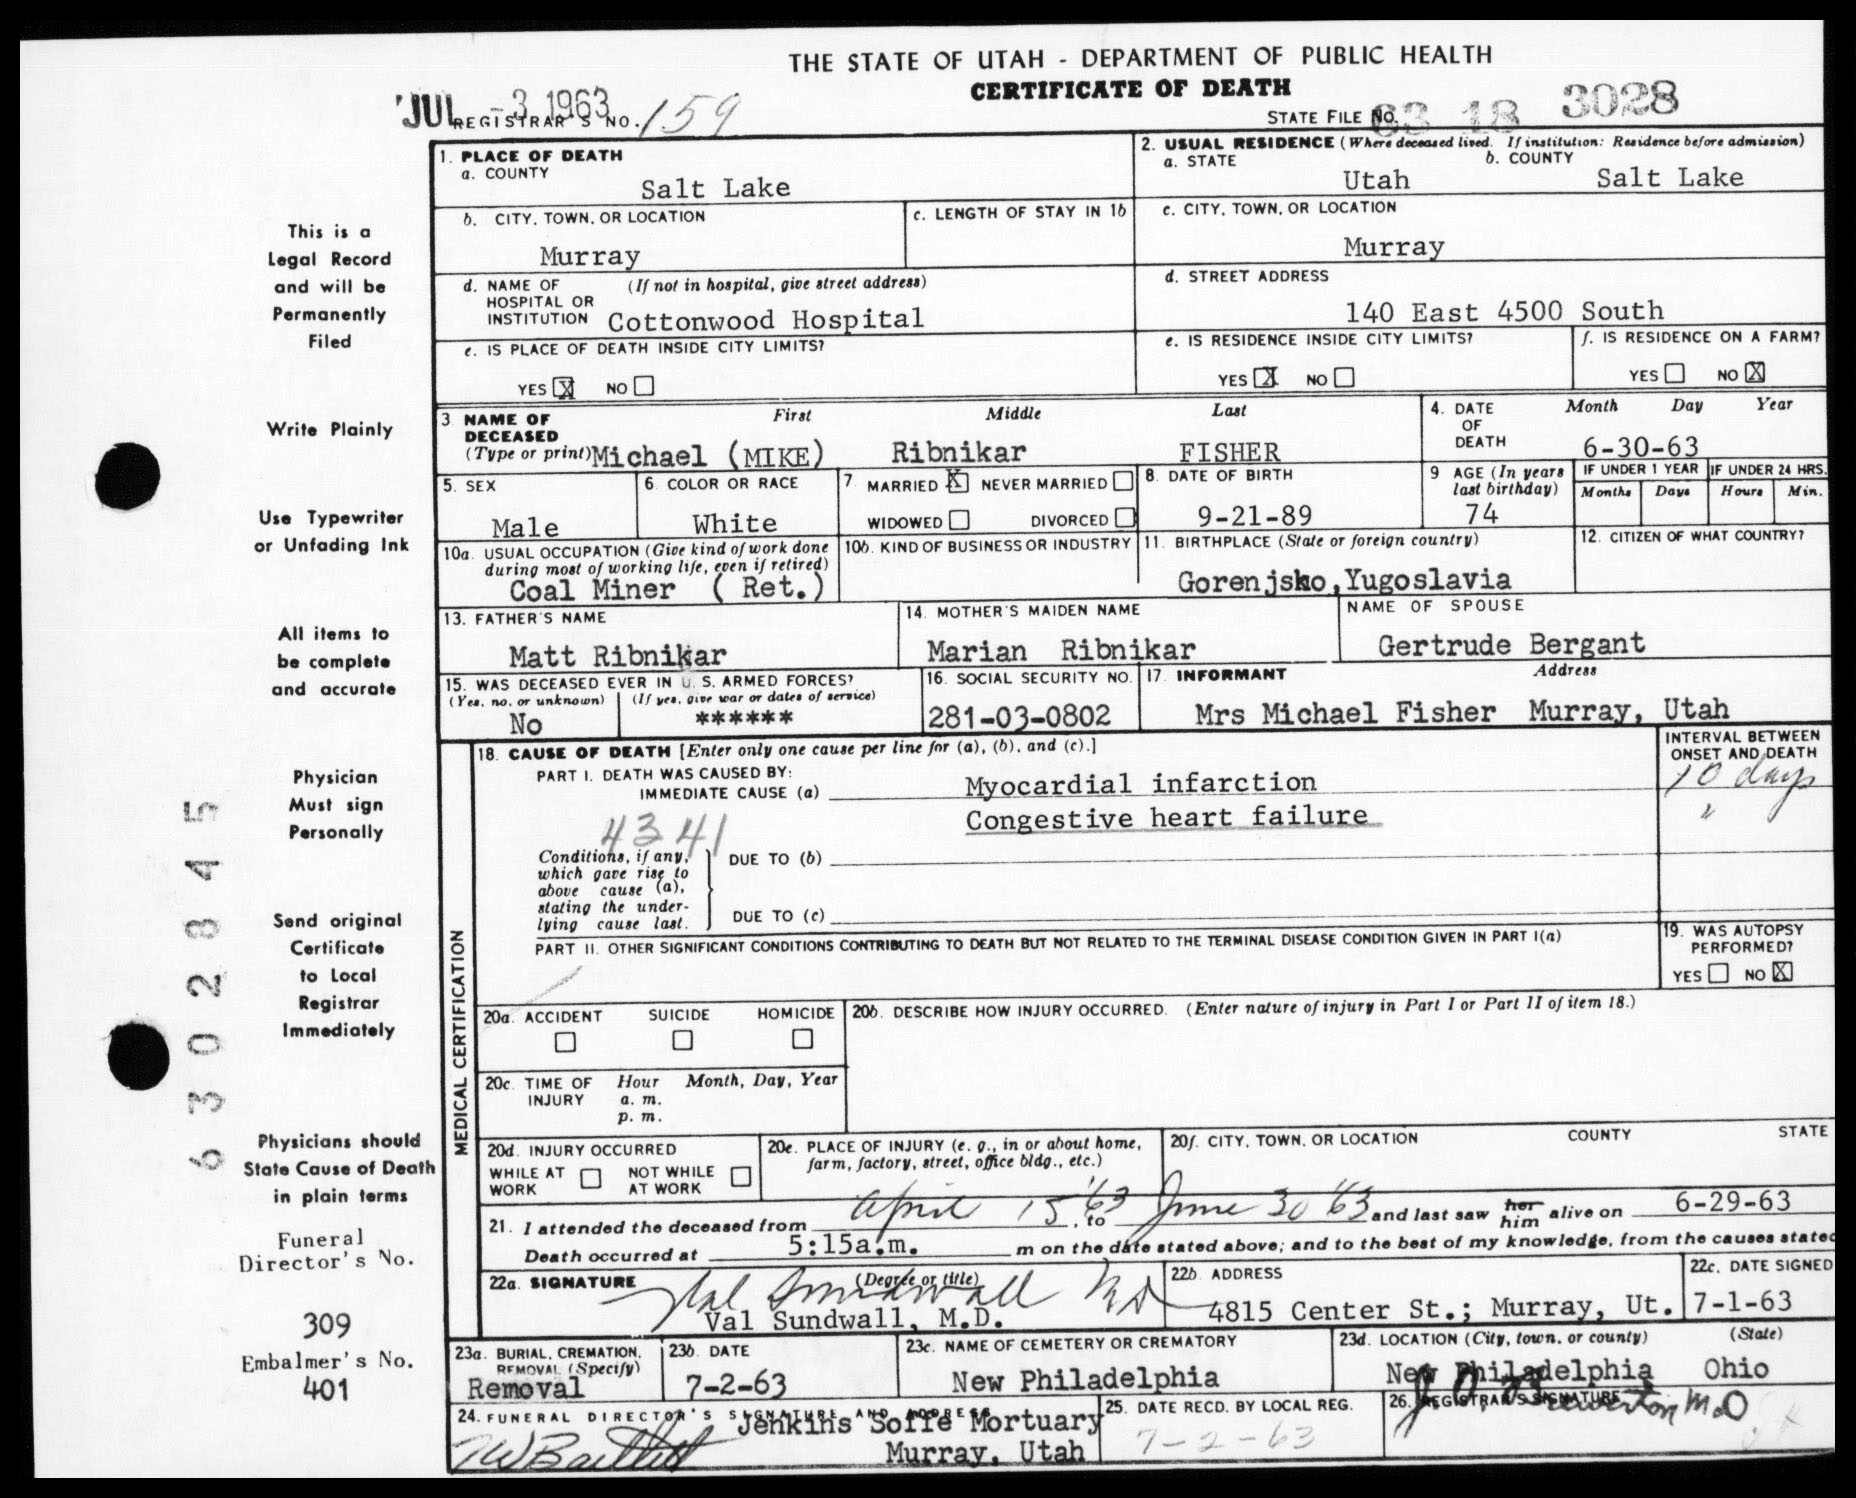 THE STATE OF UTAH - DEPARTMENT OF PUBLIC HEALTH
CERTIFICATE OF DEATH
JUL -3 1963
REGISTRAR'S NO. 159
STATE FILE NO. 63 18 3028
1. PLACE OF DEATH
a. COUNTY
Salt Lake
2. USUAL RESIDENCE (Where deceased lived. If institution: Residence before admission)
a. STATE b. COUNTY
Utah Salt Lake
b. CITY, TOWN, OR LOCATION
Murray
c. LENGTH OF STAY IN 1b
c. CITY, TOWN, OR LOCATION
Murray
d. NAME OF HOSPITAL OR INSTITUTION (If not in hospital, give street address)
Cottonwood Hospital
d. STREET ADDRESS
140 East 4500 South
e. IS PLACE OF DEATH INSIDE CITY LIMITS?
YES X NO
e. IS RESIDENCE INSIDE CITY LIMITS?
YES X NO
f. IS RESIDENCE ON A FARM?
YES NO X
3 NAME OF DECEASED (Type or print) First Middle Last
Michael (MIKE) Ribnikar FISHER
4. DATE OF DEATH Month Day Year
6-30-63
5. SEX
Male
6. COLOR OR RACE
White
7. MARRIED X NEVER MARRIED
WIDOWED DIVORCED
8. DATE OF BIRTH
9-21-89
9 AGE (In years last birthday)
74
IF UNDER 1 YEAR IF UNDER 24 HRS.
Months Days Hours Min.
10a. USUAL OCCUPATION (Give kind of work done during most of working life, even if retired)
Coal Miner ( Ret.)
10b. KIND OF BUSINESS OR INDUSTRY
11. BIRTHPLACE (State or foreign country)
Gorenjsko, Yugoslavia
12. CITIZEN OF WHAT COUNTRY?
13. FATHER'S NAME
Matt Ribnikar
14. MOTHER'S MAIDEN NAME
Marian Ribnikar
NAME OF SPOUSE
Gertrude Bergant
15. WAS DECEASED EVER IN U. S. ARMED FORCES?
(Yes, no, or unknown) (If yes, give war or dates of service)
No ******
16. SOCIAL SECURITY NO.
281-03-0802
17. INFORMANT Address
Mrs Michael Fisher Murray, Utah
MEDICAL CERTIFICATION
18. CAUSE OF DEATH [Enter only one cause per line for (a), (b), and (c).]
INTERVAL BETWEEN ONSET AND DEATH
PART I. DEATH WAS CAUSED BY:
IMMEDIATE CAUSE (a) Myocardial infarction 10 days
Congestive heart failure "
4341
Conditions, if any, which gave rise to above cause (a), stating the underlying cause last.
DUE TO (b)
DUE TO (c)
PART II. OTHER SIGNIFICANT CONDITIONS CONTRIBUTING TO DEATH BUT NOT RELATED TO THE TERMINAL DISEASE CONDITION GIVEN IN PART I(a)
19. WAS AUTOPSY PERFORMED?
YES NO X
20a. ACCIDENT SUICIDE HOMICIDE
20b. DESCRIBE HOW INJURY OCCURRED. (Enter nature of injury in Part I or Part II of item 18.)
20c. TIME OF INJURY Hour Month, Day, Year
a. m.
p. m.
20d. INJURY OCCURRED
WHILE AT WORK NOT WHILE AT WORK
20e. PLACE OF INJURY (e. g., in or about home, farm, factory, street, office bldg., etc.)
20f. CITY, TOWN, OR LOCATION COUNTY STATE
21. I attended the deceased from April 15 '63, to June 30 '63 and last saw her him alive on 6-29-63
Death occurred at 5:15a.m. m on the date stated above; and to the best of my knowledge, from the causes stated
22a. SIGNATURE (Degree or title)
Val Sundwall MD
Val Sundwall, M.D.
22b. ADDRESS
4815 Center St.; Murray, Ut.
22c. DATE SIGNED
7-1-63
23a. BURIAL, CREMATION, REMOVAL (Specify)
Removal
23b. DATE
7-2-63
23c. NAME OF CEMETERY OR CREMATORY
New Philadelphia
23d. LOCATION (City, town, or county) (State)
New Philadelphia Ohio
24. FUNERAL DIRECTOR'S SIGNATURE AND ADDRESS
Jenkins Soffe Mortuary
Murray, Utah
25. DATE RECD. BY LOCAL REG.
7-2-63
26. REGISTRAR'S SIGNATURE
This is a
Legal Record
and will be
Permanently
Filed
Write Plainly
Use Typewriter
or Unfading Ink
All items to
be complete
and accurate
Physician
Must sign
Personally
Send original
Certificate
to Local
Registrar
Immediately
Physicians should
State Cause of Death
in plain terms
Funeral
Director's No.
309
Embalmer's No.
401
6302845